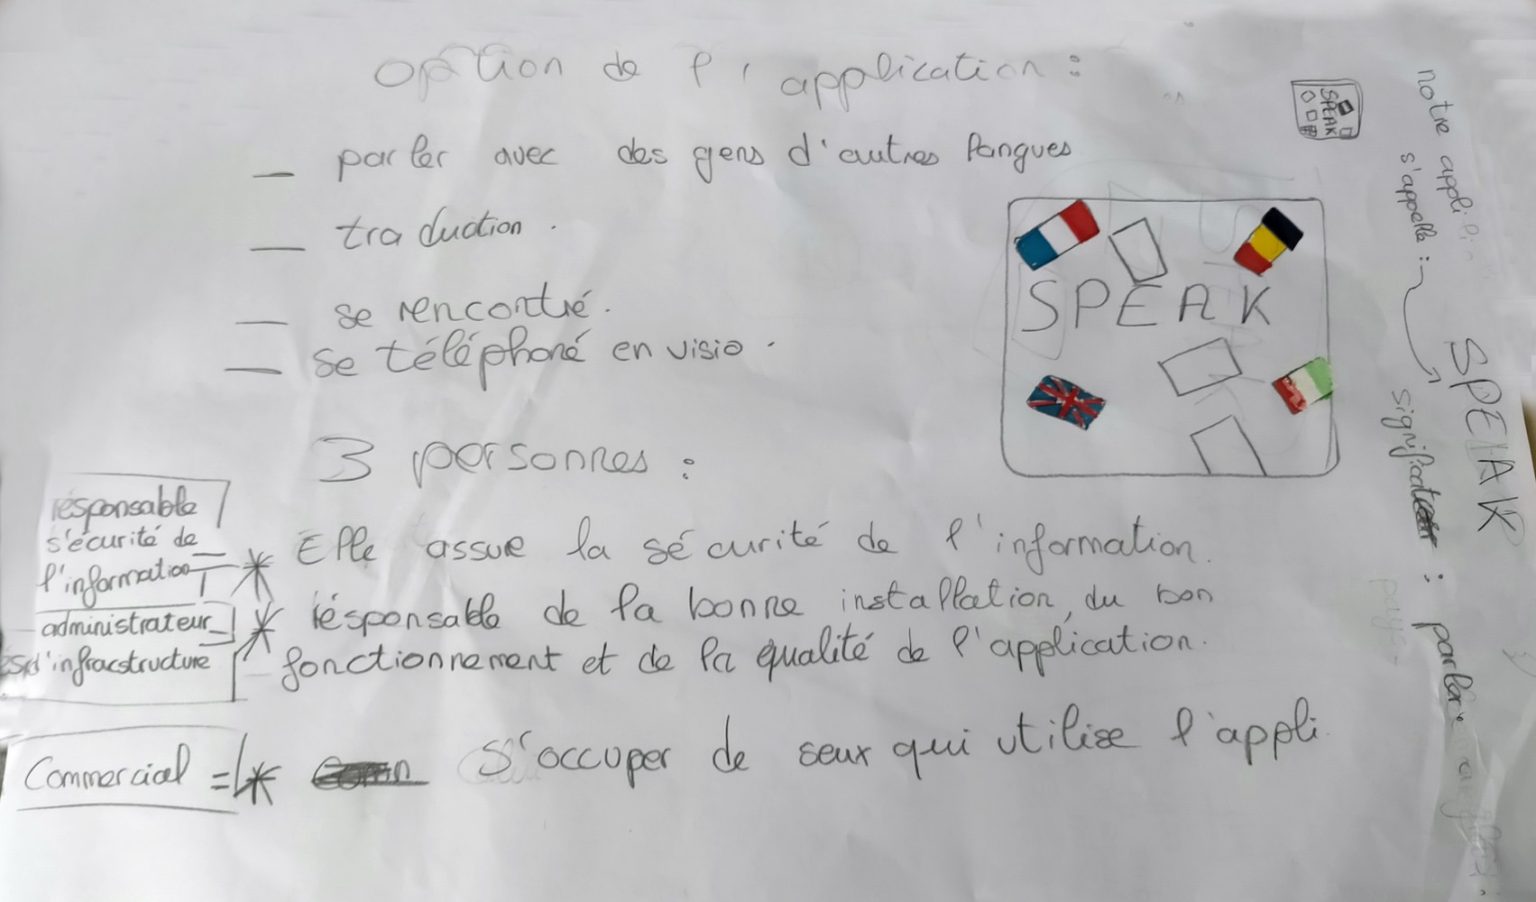 option de l'application :
_ parler avec des gens d'autres langues
_ traduction.
_ se rencontré.
_ se téléphoné en visio.
SPEAK
SPEAK
3 personnes :
résponsable
s'écurité de
l'information
* Elle assue la sécurité de l'information.
administrateur
d'infracstructure
* résponsable de la bonne installation, du bon
fonctionnement et de la qualité de l'application.
Commercial = * S'occuper de seux qui utilise l'appli
notre appli
s'appelle :
SPEAK
signification : parler
pays